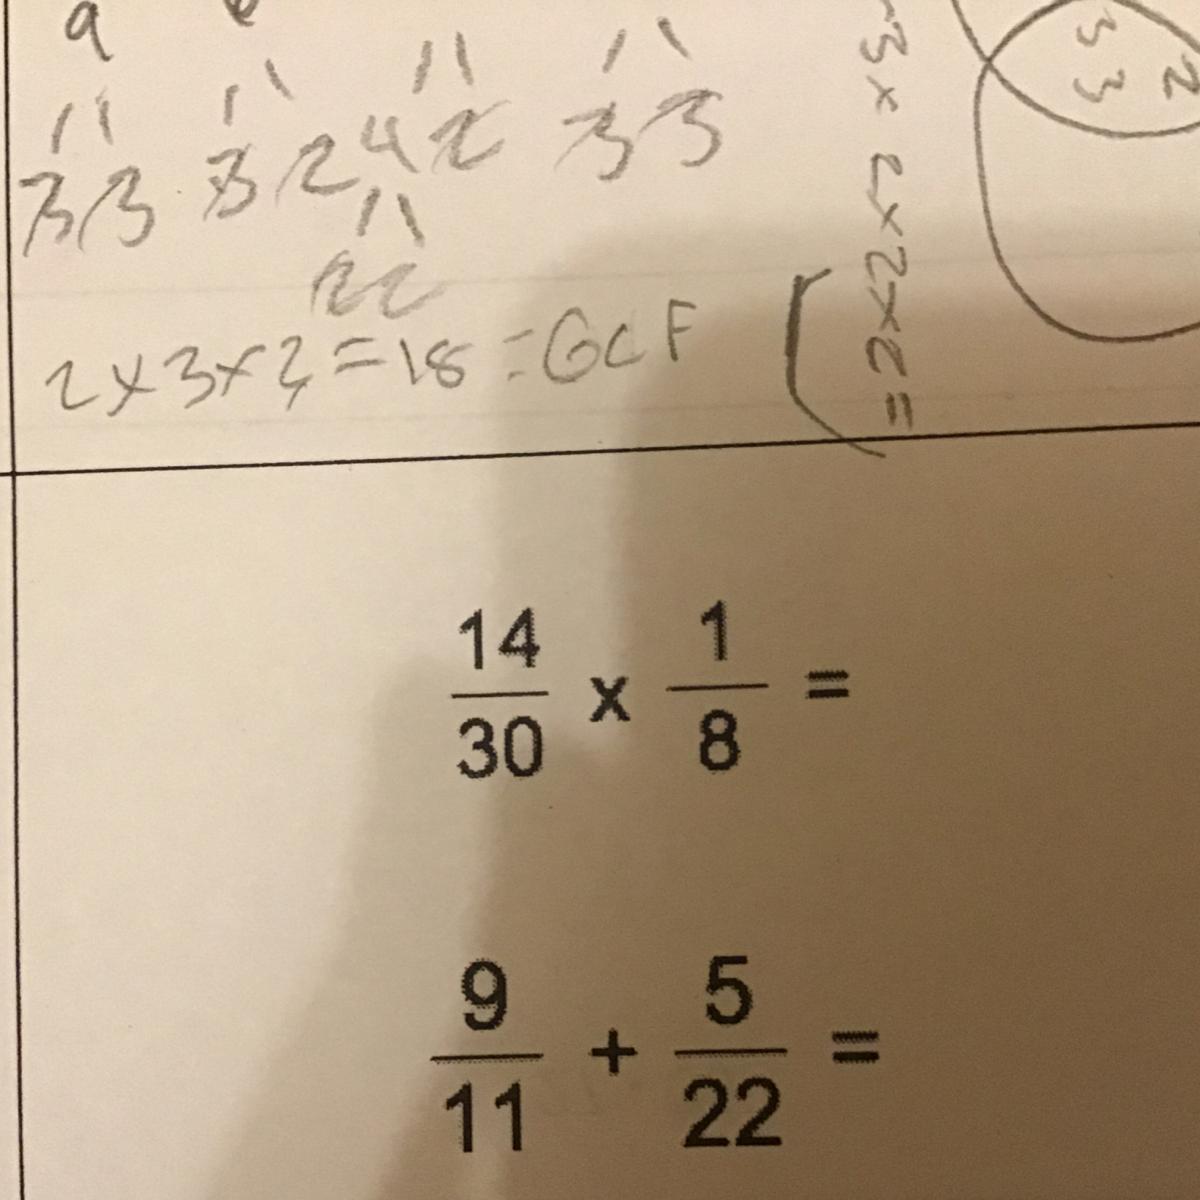 9
3 3 3 2 4 2 3 3
2 2
2 x 3 x 3 = 18 = GCF
3 x 2 x 2 x 2 =
3 3 2
14/30 x 1/8 =
9/11 + 5/22 =